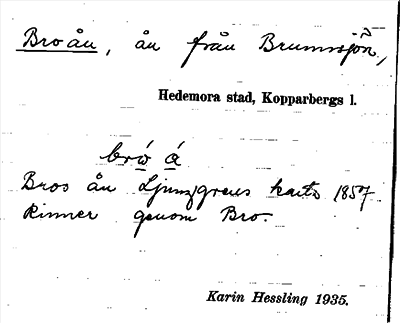 Broån, ån från Brunnsjön,
Hedemora stad, Kopparbergs l.
bró̱ á̱
Bros ån Ljunggrens karta 1857.
Rinner genom Bro.
Karin Hessling 1935.